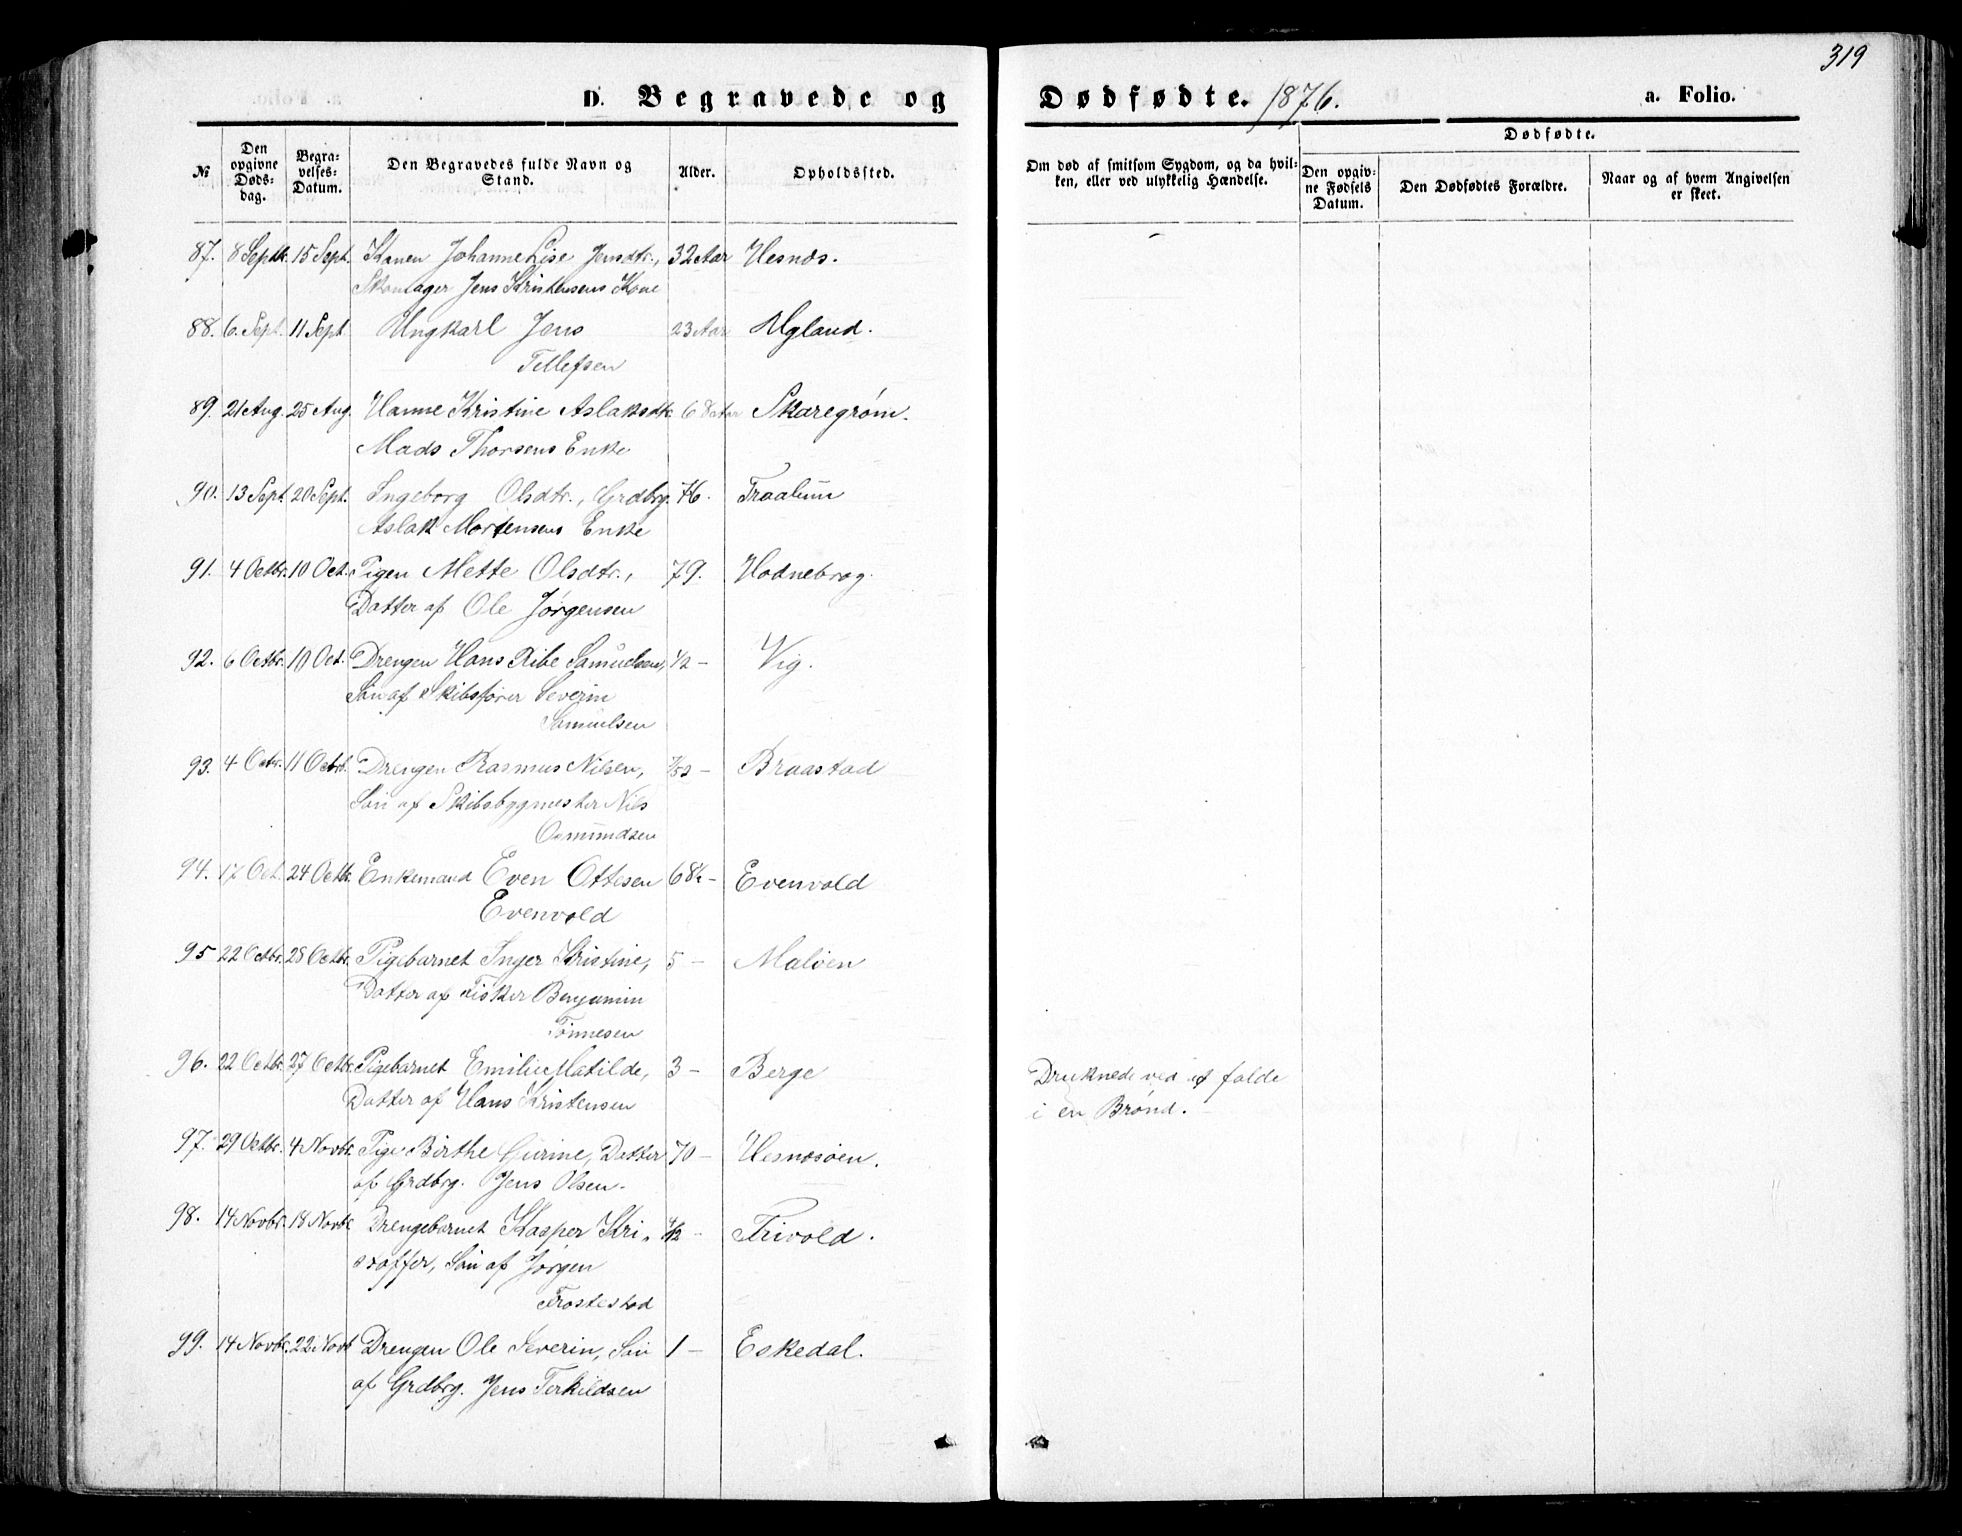 319
D. Begravede og Dødfødte. 1876. a. Folio.
№ Den opgivne Dødsdag. Begravelses-Datum. Den Begravedes fulde Navn og Stand. Alder. Opholdssted. Om død af smitsom Sygdom, og da hvilken, eller ved ulykkelig Hændelse. Dødfødte. Den opgivne Fødsels Datum. Den Dødfødtes Forældre. Naar og af hvem Angivelsen er skeet.
87. 8 Septbr. 15 Sept. Konen Johanne Lise Jensdtr., 32 Aar Hesnæs.
Jens Kristensens Kone
88. 6. Sept. 11 Sept. Ungkarl Jens 23 Aar Ugland.
Tellefsen
89. 21 Aug. 25 Aug. Hanne Kristine Aslaksdtr. 68 Aar Skaregrøm.
Mads Thorsens Enke
90. 13 Sept. 20 Sept. Ingeborg Olsdtr., Grdbrg. 76. Traalum
Aslak Mortensens Enke
91. 4 Octbr. 10 Oct. Pigen Mette Olsdtr., 79. Hodnebrog.
Datter af Ole Jørgensen
92. 6 Octbr. 10 Oct. Drengen Hans Ribe Samuelsen, 1/2 – Vig.
Søn af Skibsfører Severin
Samuelsen
93. 4 Octr. 11 Octbr. Drengen Rasmus Nilsen, – Braastad
Søn af Skibsbygmester Nils
Osmundsen
94. 17 Oct. 24 Octbr. Enkemand Even Ottesen 68½ – Evenvold
Evenvold
95 22 Octbr. 28 Octbr. Pigebarnet Inger Kristine, 5 – Maløen
Datter af Fisker Benjamin
Tønnesen
96. 22 Octbr. 27 Octbr. Pigebarnet Emilie Matilde, 3 – Berge Druknede ved at falde
Datter af Hans Kristensen i en Brønd.
97. 29 Octbr. 4 Novbr. Pige Birthe Gurine, Datter 70 – Hesnæsøen.
af Grdbrg. Jens Olsen.
98. 14 Novbr. 18 Novbr. Drengebarnet Kasper Kri- – Frivold.
stoffer, Søn af Jørgen
Frostestad
99. 14 Novbr. 22 Novb Drengen Ole Severin, Søn 1 – Eskedal.
af Grdbrg. Jens Terkildsen